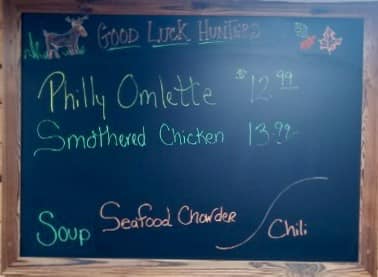 GOOD LUCK HUNTERS
Philly Omlette $12.99
Smothered Chicken 13.99
Soup Seafood Chowder / Chili